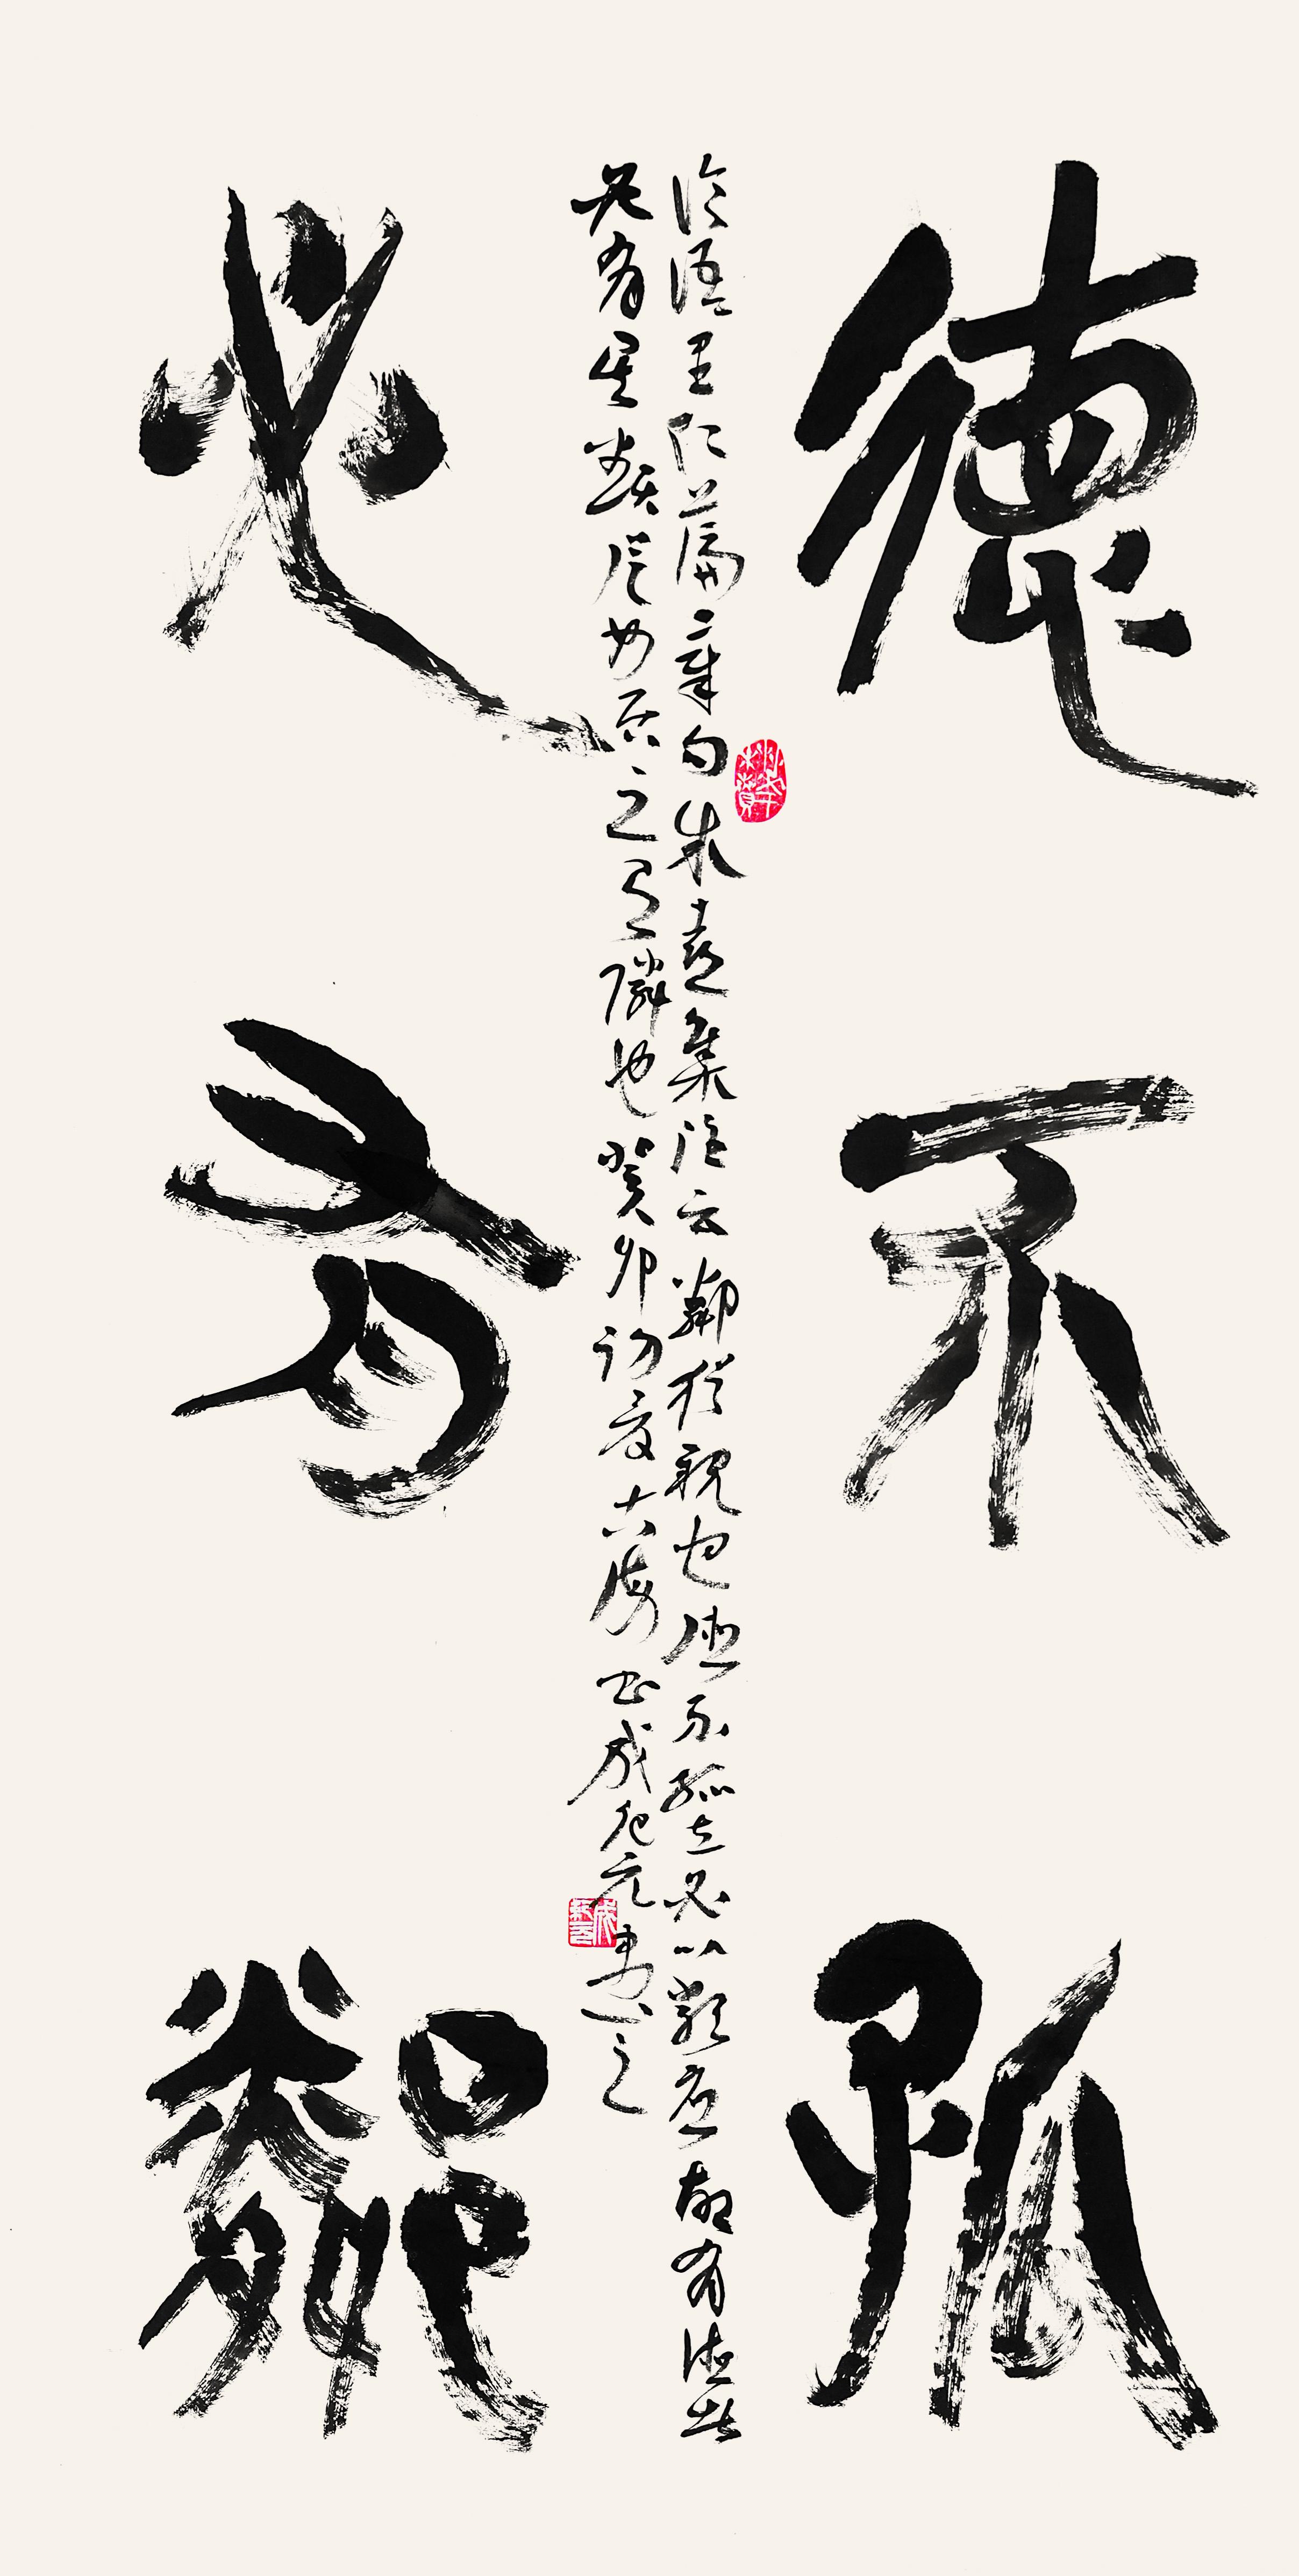 德不孤
必有鄰
論語里仁篇章句朱熹集注云鄰猶親也德不孤立必以類應故有德者
必有其類從如居之有隣也癸卯初夏古
書成 之